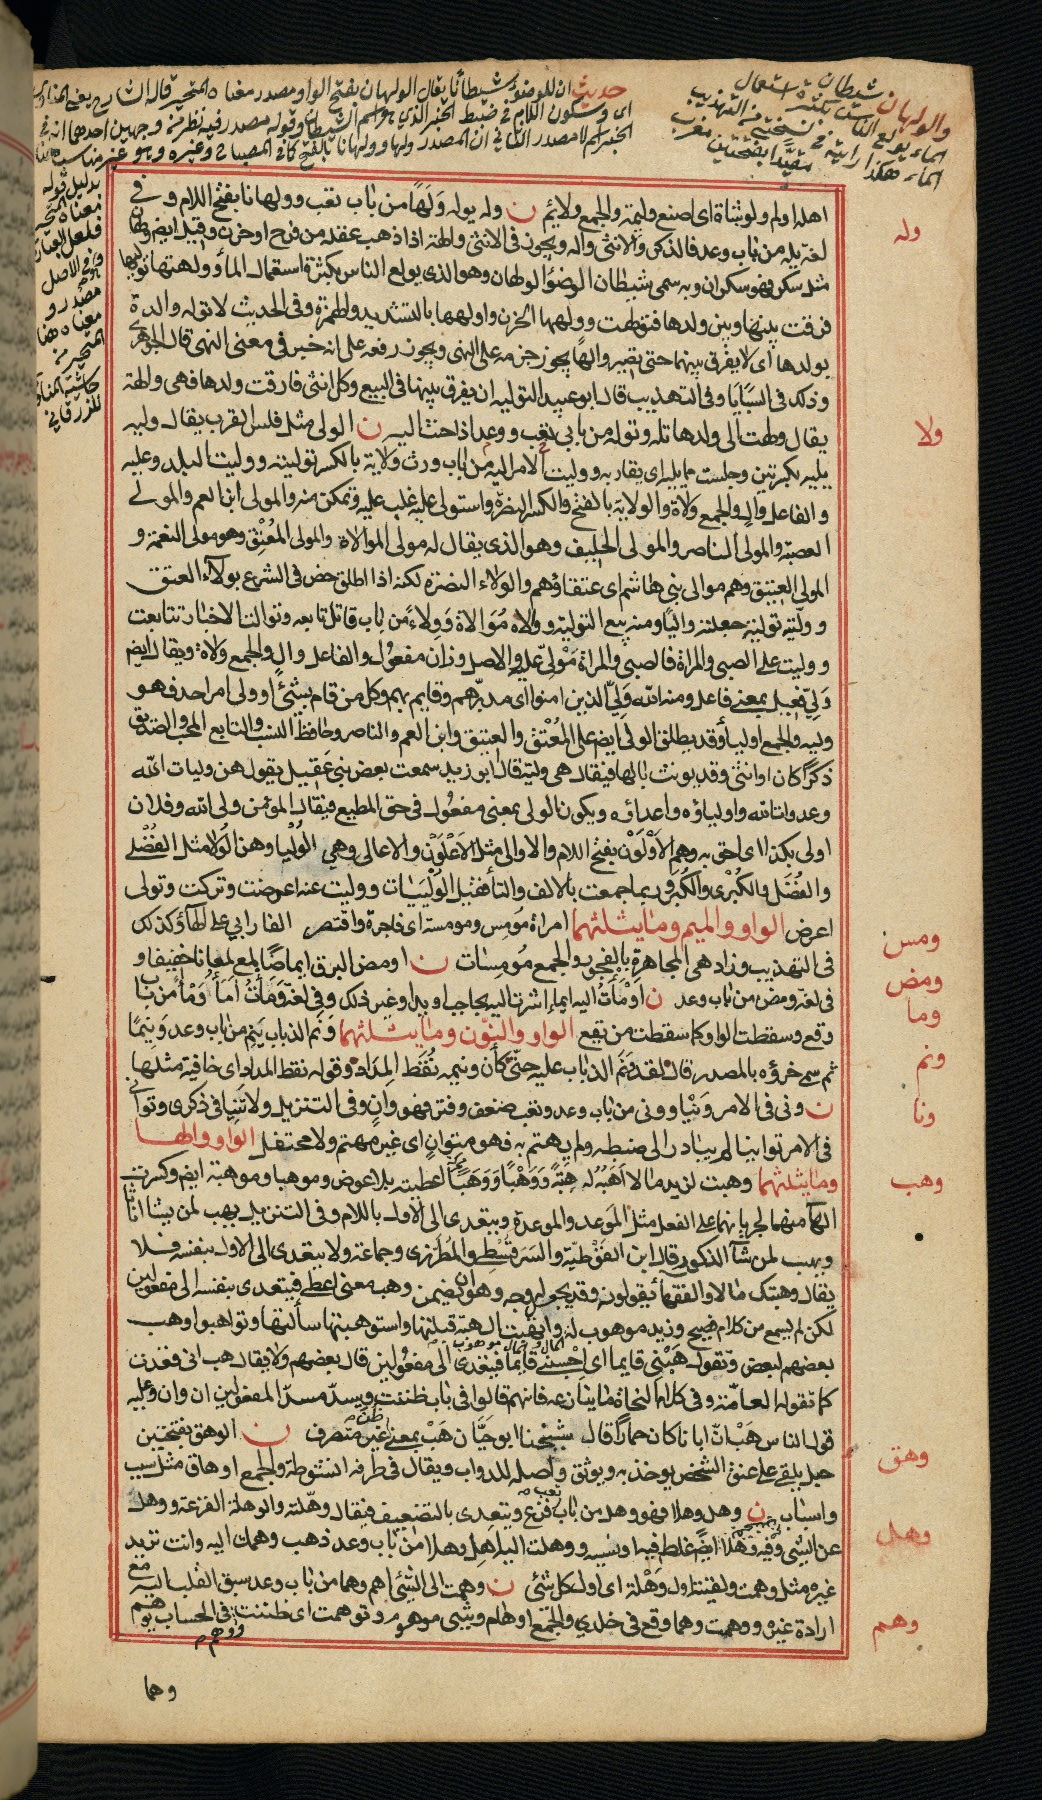 حديث ان للوضوء شيطانا يقال الولهان بفتح الواو مصدر معناه المتحير قاله الشارح يعنى المناوى
اى وسكون اللام فى ضبط الخبر الذى هو اسم الشيطان وقوله مصدر فيه نظر من وجهين احدهما انه فى
الخبر اسم لا مصدر الثانى ان المصدر ولها وولهانا بالفتح كما فى المصباح وغيره وهو غير مناسب هنا
بدليل قوله
معناه المتحير
فلعل العبارة
وهو فى الاصل
مصدر و
معناه هنا
المتحير من
حاشية المناوى
للزرقانى
والولهان شيطان
الماء يولع الناس بكثرة استعمال
الماء هكذا رايته فى نسختى من التهذيب
مقيدا بفتحتين مغرب
اهله اولم ولو بشاة اى اصنع وليمة والجمع ولائم ن وله يوله وَلَهًا من باب تعب وولهانا بفتح اللام وفى
لغة يله من باب وعد فالذكر والانثى واله ويجوز فى الانثى والهة اذا ذهب عقله من فرح او حزن وقيل ايض ولهان
مثل سكر فهو سكران وبه سمى شيطان الوضوء الولهان وهو الذى يولع الناس بكثرة استعمال الماء وولهتها توليها
فرقت بينها وبين ولدها فتولهت وولهها الحزن واولهها بالتشديد والهمزة وفى الحديث لا توله والدة
بولدها اى لا يفرق بينهما حتى تصير والها يجوز جزمه على النهى ويجوز رفعه على انه خبر فى معنى النهى قال الجوهرى
وذلك فى السبايا وفى التهذيب قال ابو عبيد التوليه ان يفرق بينهما فى البيع وكل انثى فارقت ولدها فهى والهة
يقال ولهت الى ولدها تله وتوله من بابى تعب ووعد اذا حنت اليه ن الولى مثل فلس القرب يقال وليه
يليه بكسرتين وجلست مما يليه اى يقاربه ووليت الامر اليه من باب ورث ولاية بالكسر توليته ووليت البلد وعليه
والفاعل وال والجمع ولاة والولاية بالفتح والكسر النصرة واستولى عليه غلب عليه وتمكن منه والمولى ابن العم والمولى
العصبة والمولى الناصر والمولى الحليف وهو الذى يقال له مولى الموالاة والمولى المُعْتِق وهو مولى النعمة و
المولى العتيق وهم موالى بنى هاشم اى عتقاؤهم والولاء النصرة لكنه اذا اطلق خص فى الشرع بولاء العتق
ووليته تولية جعلته واليا ومنه بيع التولية ووالاه مُوَالاة وَوِلاءً من باب قاتل تابعه وتوالت الاخبار تتابعت
ووليت على الصبى والمراة فالصبى والمراة مَوْلِىّ عليه والاصل وزان مفعول والفاعل وال والجمع ولاة ويقال ايض
وَلِىّ فعيل بمعنى فاعل ومنه الله وَلِىّ الذين امنوا اى مدبرهم وقايم بهم وكل من قام بشئ او ولى امر احد فهو
وليه والجمع اوليا وقد يطلق الولى ايض على المُعْتِق والعتيق وابن العم والناصر وحافظ النسب والتابع المحب والصديق
ذكرا كان او انثى وقد يونث بالها فيقال هى ولية قال ابو زيد سمعت بعض بنى عَقِيل يقول هن وليات الله
وعدوات الله واولياؤه واعداؤه ويكون الولى بمعنى مفعول فى حق المطيع فيقال المؤمن ولى الله وفلان
اولى بكذا اى احق به وهم الاَوْلَوْن بفتح اللام والاوالى مثل الاَعْلَوْن والاعالى وهى الوُلْيا وهن الوُلا مثل الفُضْلى
والفُضَل والكُبْرى والكُبَر وربما جمعت بالالف والتا فقيل الوُلْيَيات ووليت عنه اعرضت وتركت وتولى
اعرض الواو والميم ومايثلثهما امراة مُومِس ومومسة اى فاجرة واقتصر الفارابى على الهاء وكذلك
فى التهذيب وزاد هى المجاهرة بالفجور والجمع مُومِسَات ن اومض البرق ايماضا لمع لمعانا خفيفا و
فى لغة ومض من باب وعد ن اَوْمَأْتُ اليه ايماء اشرت اليه بحاجب او يد او غير ذلك وفى لغة وَمَأْتُ اَمَأُ وَمْأً من باب
وقع وسقطت الواو كما سقطت من يقع الواو والنون ومايثلثهما وَنَمَ الذباب يَنِمُ من باب وعد وَنِيمًا
ثم سمى خرؤه بالمصدر قال لقد وَنَمَ الذباب عليه حتى كأن ونيمه نُقَط المِدَاد وقوله نقط المداد اى خافية مثلها
ن ونى فى الامر وَنْيا وونى من باب وعد وتعب ضعف وفتر فهو وان وفى التنزيل ولا تَنِيا فى ذكرى وتوانى
فى الامر توانيا لم يبادر الى ضبطه ولم يهتم به فهو متوان اى غير مهتم ولا محتفل الواو والها
ومايثلثهما وهبت لزيد مالا اَهَبُهُ له هِبَةً وَوَهْبًا وَوَهَبًا اعطيته بلا عوض وموهبا وموهبة ايض وكسرت
الهاء منهما لجريانهما على الفعل مثل الموعد والموعدة ويتعدى الى الاول باللام وفى التنزيل يهب لمن يشا اناثا
ويهب لمن شآ الذكور قال ابن القُوْطِيّة والسَرَقُسْطِى والمُطَرّزى وجماعة ولا يتعدى الى الاول بنفسه فلا
يقال وهبتك مالا والفقها يقولونه وقد يجعل له وجه وهو ان يضمن وهب معنى اعطى فيتعدى بنفسه الى مفعولين
لكن لم يسمع من كلام فصيح وزيد موهوب له واتهبت الهبة قبلتها واستوهبتها سألتها وتواهبوا وهب
بعضهم لبعض وتقول هَبْنى قايما اى اِحْسِبْنى قايما فيتعدى الى مفعولين قال بعضهم ولا يقال هب انى فعدت
كما تقوله العامة وفى كلام النحاة ما ينازعه فانهم قالوا فى باب ظننت ويسد مسد المفعولين ان وان وعليه
قول الناس هَبْ انّ ابانا كان حمارا قال شيخنا ابو حيّان هَبْ بمعنى ظن غير متصرف ن الوهق بفتحتين
حبل يلقى على عنق الشخص يوخذ به ويوثق واصله للدواب ويقال فى طرفه انشوطة والجمع اوهاق مثل سبب
واسباب ن وهل وهلا فهو وهل من باب تعب فزع ويتعدى بالتضعيف فيقال وهّلته والوهلة الفزعة ووهل
عن الشى وفيه وَهَلا ايضا غلط فيه او نسيه ووهلت اليه اَهِل وهلا من باب وعد ذهب وهمك اليه وانت تريد
غيره مثل وهمت ولقيته اول وَهْلة اى اول كل شئ ن وهمت الى الشئ اهم وهما من باب وعد سبق القلب اليه مع
ارادة غيره ووهمت وهما وقع فى خلدى والجمع اوهام وشى موهوم وتوهمت اى ظننت فى الحساب يوهم
ووهم
وله
ولا
ومس
ومض
وما
ونم
ونا
وهب
وهق
وهل
وهم
وهما